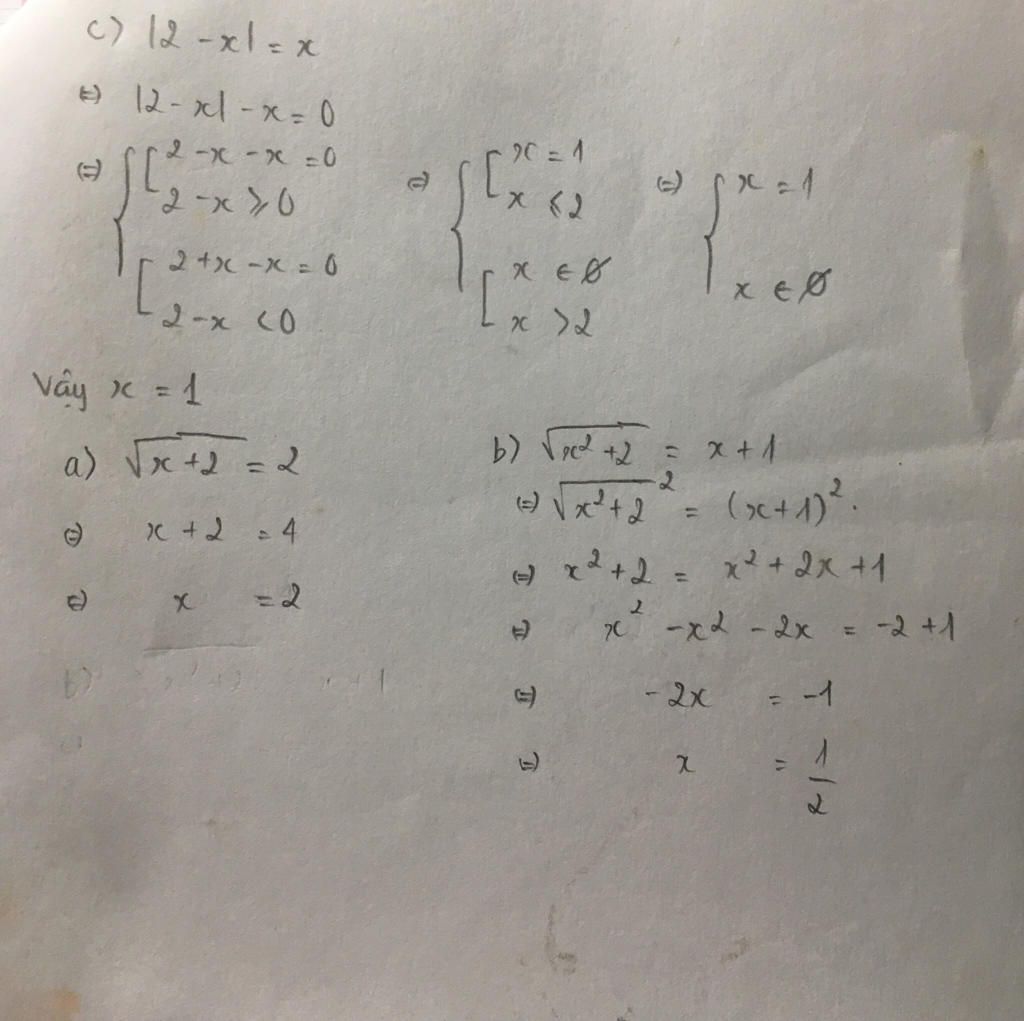 c) |2 - x| = x
⇔ |2 - x| - x = 0
⇔ { [ 2 - x - x = 0 ⇔ { [ x = 1 ⇔ { x = 1
2 - x ⩾ 0 x ⩽ 2
[ 2 + x - x = 0 [ x ∈ ∅ x ∈ ∅
2 - x < 0 x > 2
Vậy x = 1
a) √(x + 2) = 2
⇔ x + 2 = 4
⇔ x = 2
b) √(x² + 2) = x + 1
⇔ √(x² + 2)² = (x + 1)².
⇔ x² + 2 = x² + 2x + 1
⇔ x² - x² - 2x = -2 + 1
⇔ - 2x = -1
⇔ x = 1/2